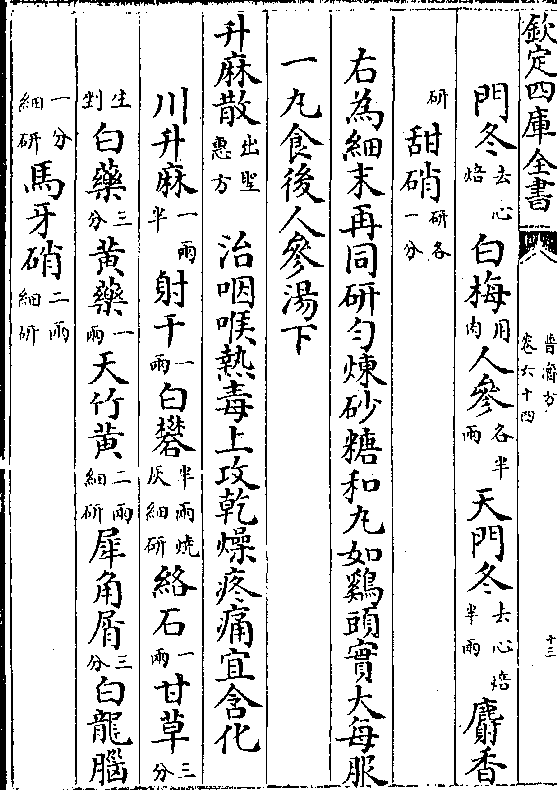 欽定四庫全書
普濟方
卷六十四
十三
門冬去心焙白梅用肉人參各半兩天門冬去心焙半兩麝香
研甜硝研各一分
右為細末再同研勻煉砂糖和丸如鷄頭實大每服
一丸食後人參湯下
升麻散出聖惠方治咽喉熱毒上攻乾燥疼痛宜含化
川升麻一兩半射干一兩白礬半兩燒灰細研絡石一兩甘草三分
生剉白藥三分黃藥一兩天竹黃二兩細研犀角屑三分白龍腦
一分細研馬牙硝二兩細研